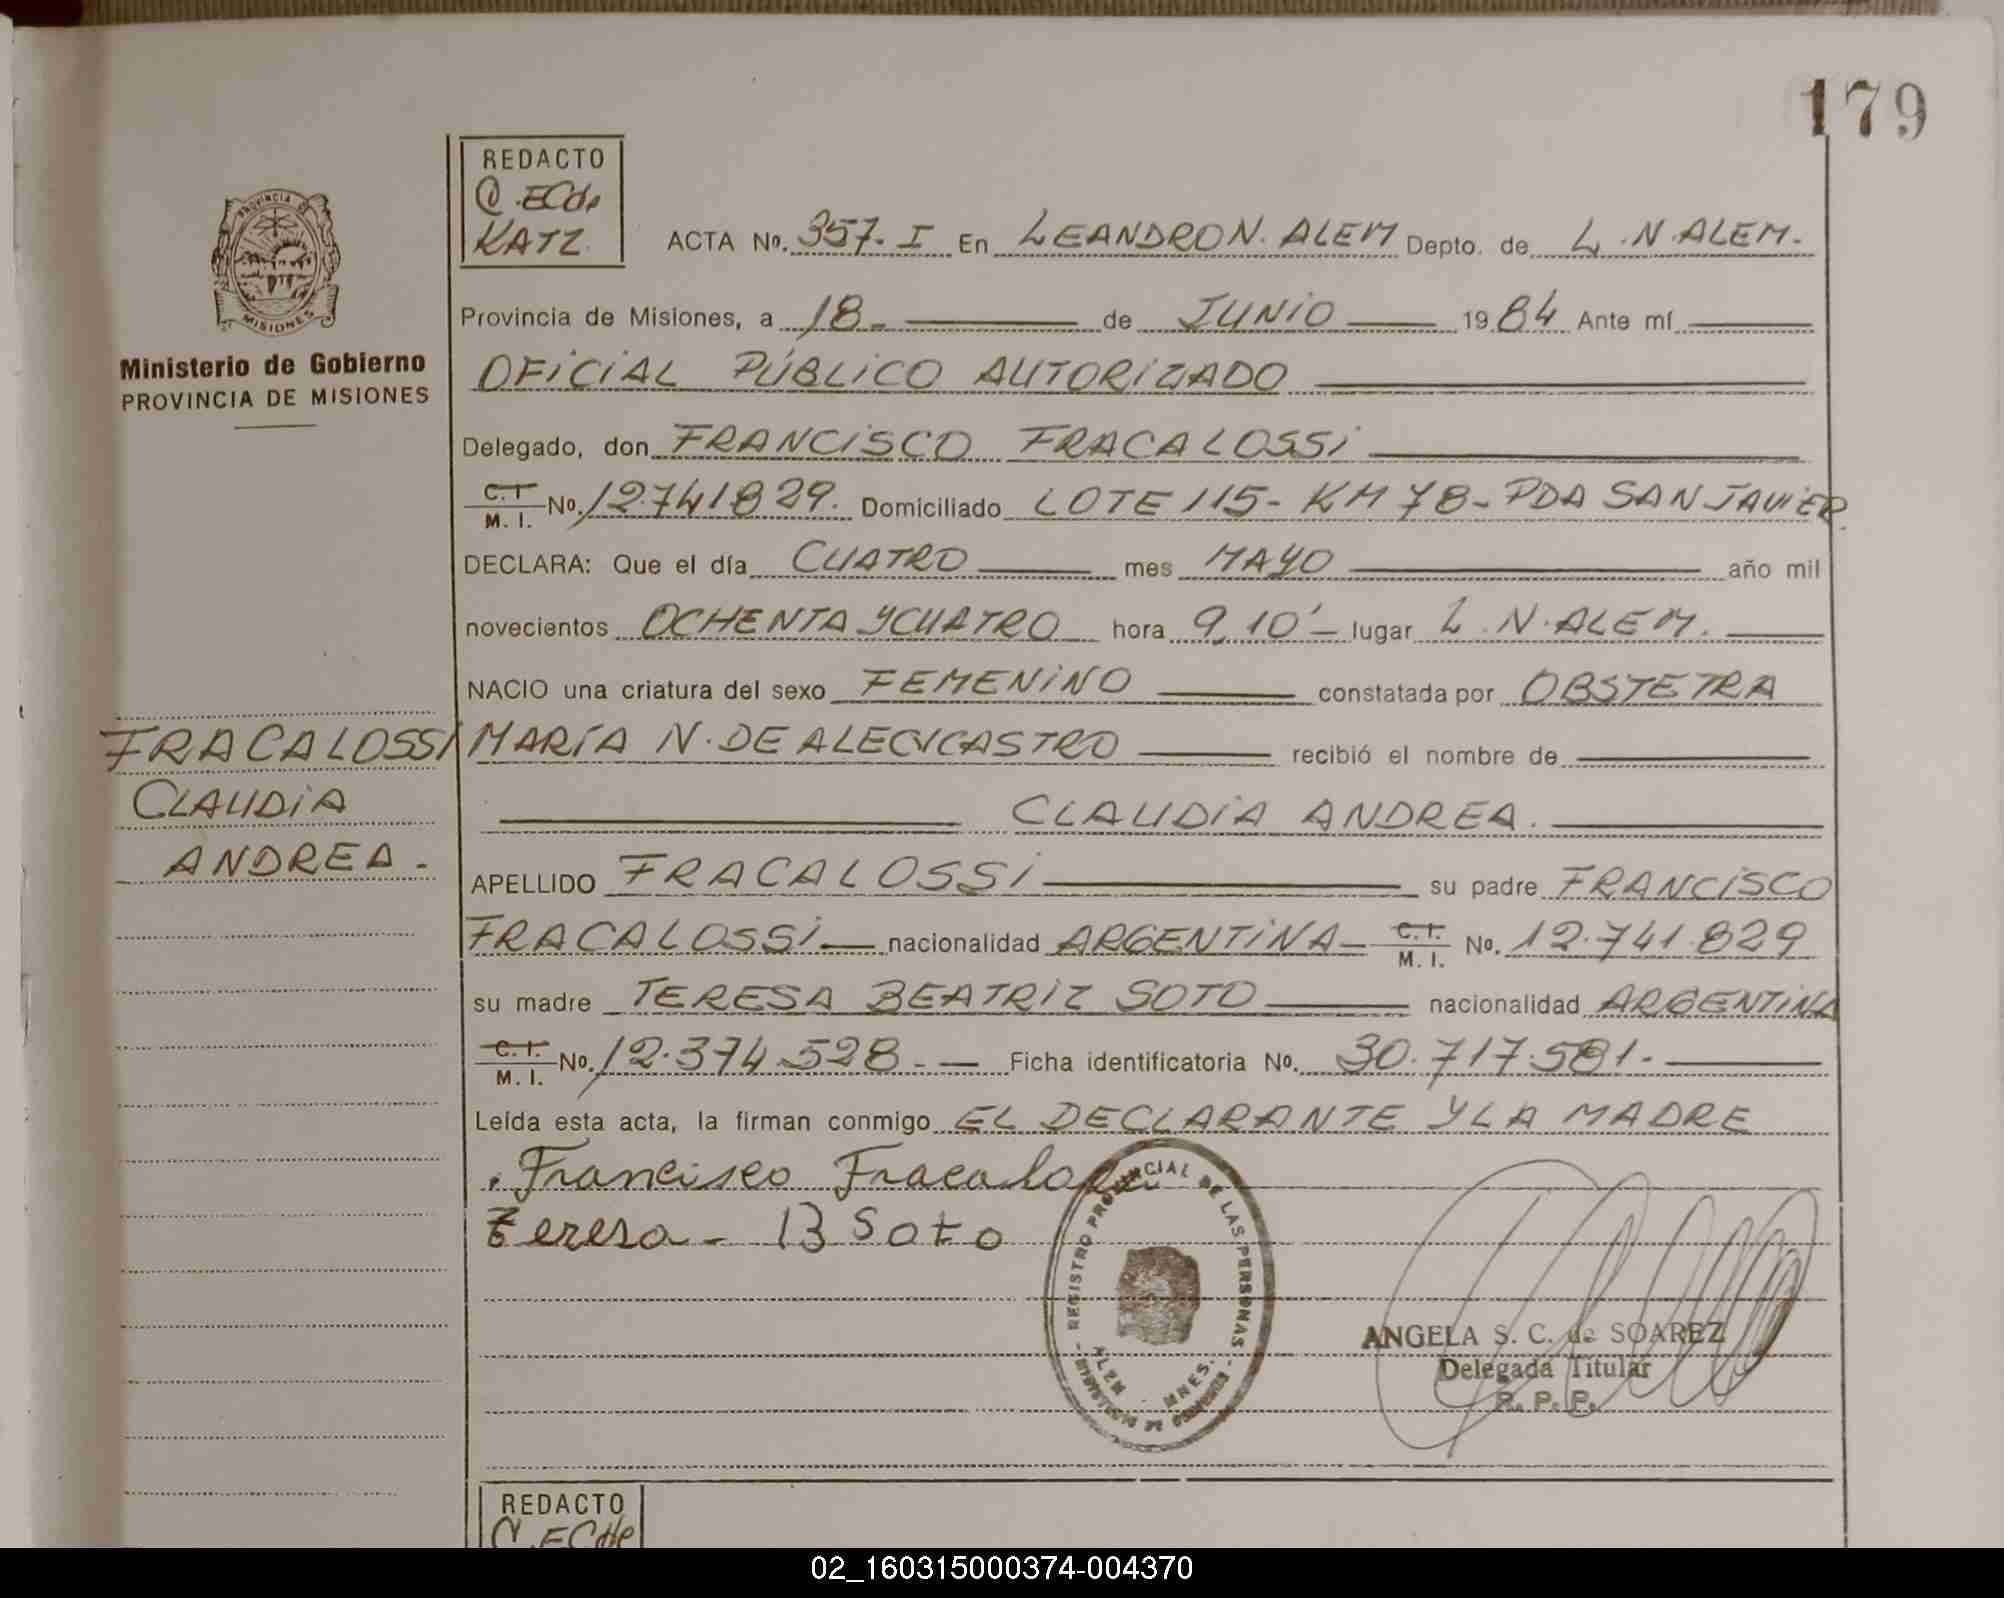 179
REDACTO
C.ECde
KATZ.
PROVINCIA DE
MISIONES
Ministerio de Gobierno
PROVINCIA DE MISIONES
ACTA No. 357-I En LEANDRO N. ALEM Depto. de L.N.ALEM.
Provincia de Misiones, a 18- de JUNIO 1984 Ante mí
OFICIAL PÚBLICO AUTORIZADO
Delegado, don FRANCISCO FRACALOSSI
C.I. M. I. No. 12.741829. Domiciliado LOTE 115- KM 78- PDA SAN JAVIER.
DECLARA: Que el día CUATRO mes MAYO año mil
novecientos OCHENTA Y CUATRO hora 9,10' lugar L.N.ALEM.
NACIO una criatura del sexo FEMENINO constatada por OBSTETRA
MARÍA N. DE recibió el nombre de
CLAUDIA ANDREA.
APELLIDO FRACALOSSI su padre FRANCISCO
FRACALOSSI nacionalidad ARGENTINA- C.I. M. I. No. 12.741.829
su madre TERESA BEATRIZ SOTO nacionalidad ARGENTINA
C.I. M. I. No. 12.374.528- Ficha identificatoria No. 30.717.581.
Leída esta acta, la firman conmigo EL DECLARANTE Y LA MADRE
FRACALOSSI
CLAUDIA
ANDREA-
Francisco Fracalossi
Teresa- B Soto
REGISTRO PROVINCIAL DE LAS PERSONAS
ALEM - MNES.
MINISTERIO DE GOBIERNO
ANGELA S. C. de SOAREZ
Delegada Titular
R. P. P.
REDACTO
C.ECde
02_160315000374-004370